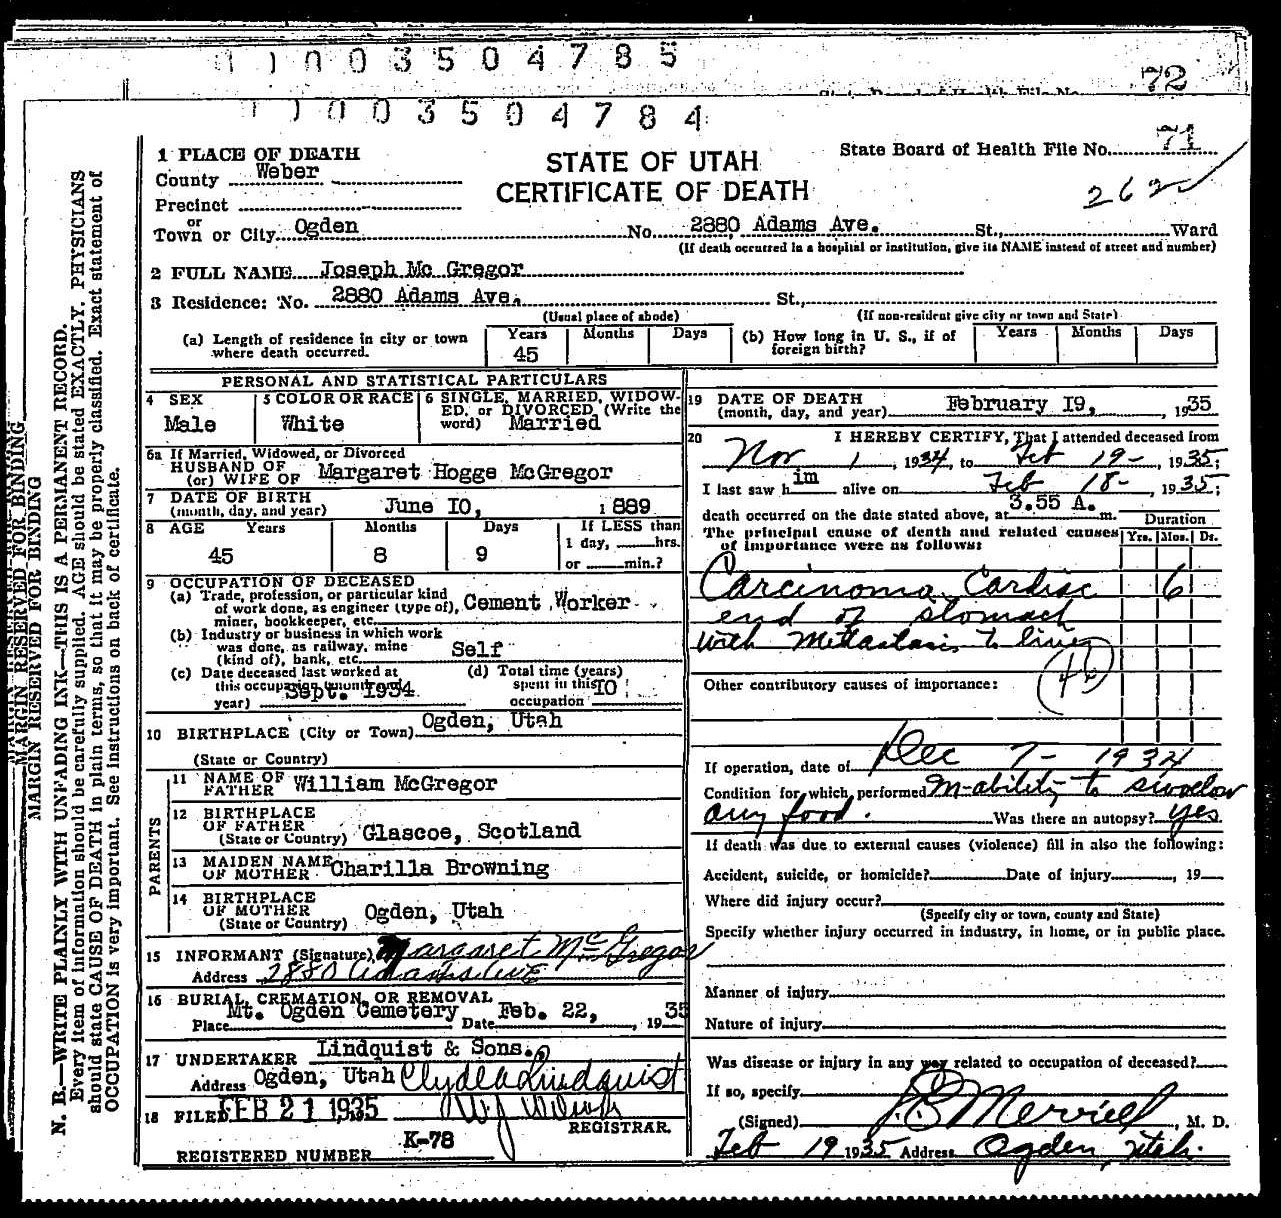 1 1 0 0 3 5 0 4 7 8 5
72
1 1 0 0 3 5 0 4 7 8 4
1 PLACE OF DEATH
STATE OF UTAH
CERTIFICATE OF DEATH
State Board of Health File No. 71
County Weber
262
Precinct
or
Town or City Ogden No. 2880 Adams Ave. St., Ward
(If death occurred in a hospital or institution, give its NAME instead of street and number)
2 FULL NAME Joseph Mc Gregor
3 Residence: No. 2880 Adams Ave. St.,
(Usual place of abode) (If non-resident give city or town and State)
(a) Length of residence in city or town where death occurred. Years 45 Months Days (b) How long in U. S., if of foreign birth? Years Months Days
PERSONAL AND STATISTICAL PARTICULARS
4 SEX Male
5 COLOR OR RACE White
6 SINGLE, MARRIED, WIDOWED, or DIVORCED (Write the word) Married
6a If Married, Widowed, or Divorced
HUSBAND OF
(or) WIFE OF Margaret Hogge McGregor
7 DATE OF BIRTH
(month, day, and year) June 10, 1889
8 AGE Years 45 Months 8 Days 9 If LESS than
1 day, hrs.
or min.?
9 OCCUPATION OF DECEASED
(a) Trade, profession, or particular kind
of work done, as engineer (type of), Cement Worker
miner, bookkeeper, etc.
(b) Industry or business in which work
was done, as railway, mine Self
(kind of), bank, etc.
(c) Date deceased last worked at
this occupation (month and year) Sept. 1934
(d) Total time (years)
spent in this occupation 10
10 BIRTHPLACE (City or Town) Ogden, Utah
(State or Country)
PARENTS
11 NAME OF FATHER William McGregor
12 BIRTHPLACE OF FATHER
(State or Country) Glascoe, Scotland
13 MAIDEN NAME OF MOTHER Charilla Browning
14 BIRTHPLACE OF MOTHER
(State or Country) Ogden, Utah
15 INFORMANT (Signature) Margaret McGregor
Address 2880 Adams Ave
16 BURIAL, CREMATION, OR REMOVAL
Place Mt. Ogden Cemetery Date Feb. 22, 1935
17 UNDERTAKER Lindquist & Sons.
Address Ogden, Utah Clyde A Lindquist
18 FILED FEB 21 1935
REGISTRAR.
K-78
REGISTERED NUMBER
19 DATE OF DEATH
(month, day, and year) February 19, 1935
20 I HEREBY CERTIFY, That I attended deceased from
Nov 1, 1934, to Feb 19-, 1935;
I last saw him alive on Feb 18-, 1935;
death occurred on the date stated above, at 3.55 A. m.
The principal cause of death and related causes
of importance were as follows:
Duration
Yrs. Mos. Ds.
Carcinoma Cardiac 6
end of stomach
with Metastasis to liver
(46)
Other contributory causes of importance:
If operation, date of Dec 7- 1934
Condition for which performed In-ability to swallow
any food. Was there an autopsy? yes
If death was due to external causes (violence) fill in also the following:
Accident, suicide, or homicide? Date of injury, 19
Where did injury occur?
(Specify city or town, county and State)
Specify whether injury occurred in industry, in home, or in public place.
Manner of injury
Nature of injury
Was disease or injury in any way related to occupation of deceased?
If so, specify
(Signed) Merrill, M. D.
Feb 19 1935 Address Ogden, Utah.
MARGIN RESERVED FOR BINDING
MARGIN RESERVED FOR BINDING
N. B.—WRITE PLAINLY WITH UNFADING INK—THIS IS A PERMANENT RECORD.
Every item of information should be carefully supplied. AGE should be stated EXACTLY. PHYSICIANS
should state CAUSE OF DEATH in plain terms, so that it may be properly classified. Exact statement of
OCCUPATION is very important. See instructions on back of certificate.